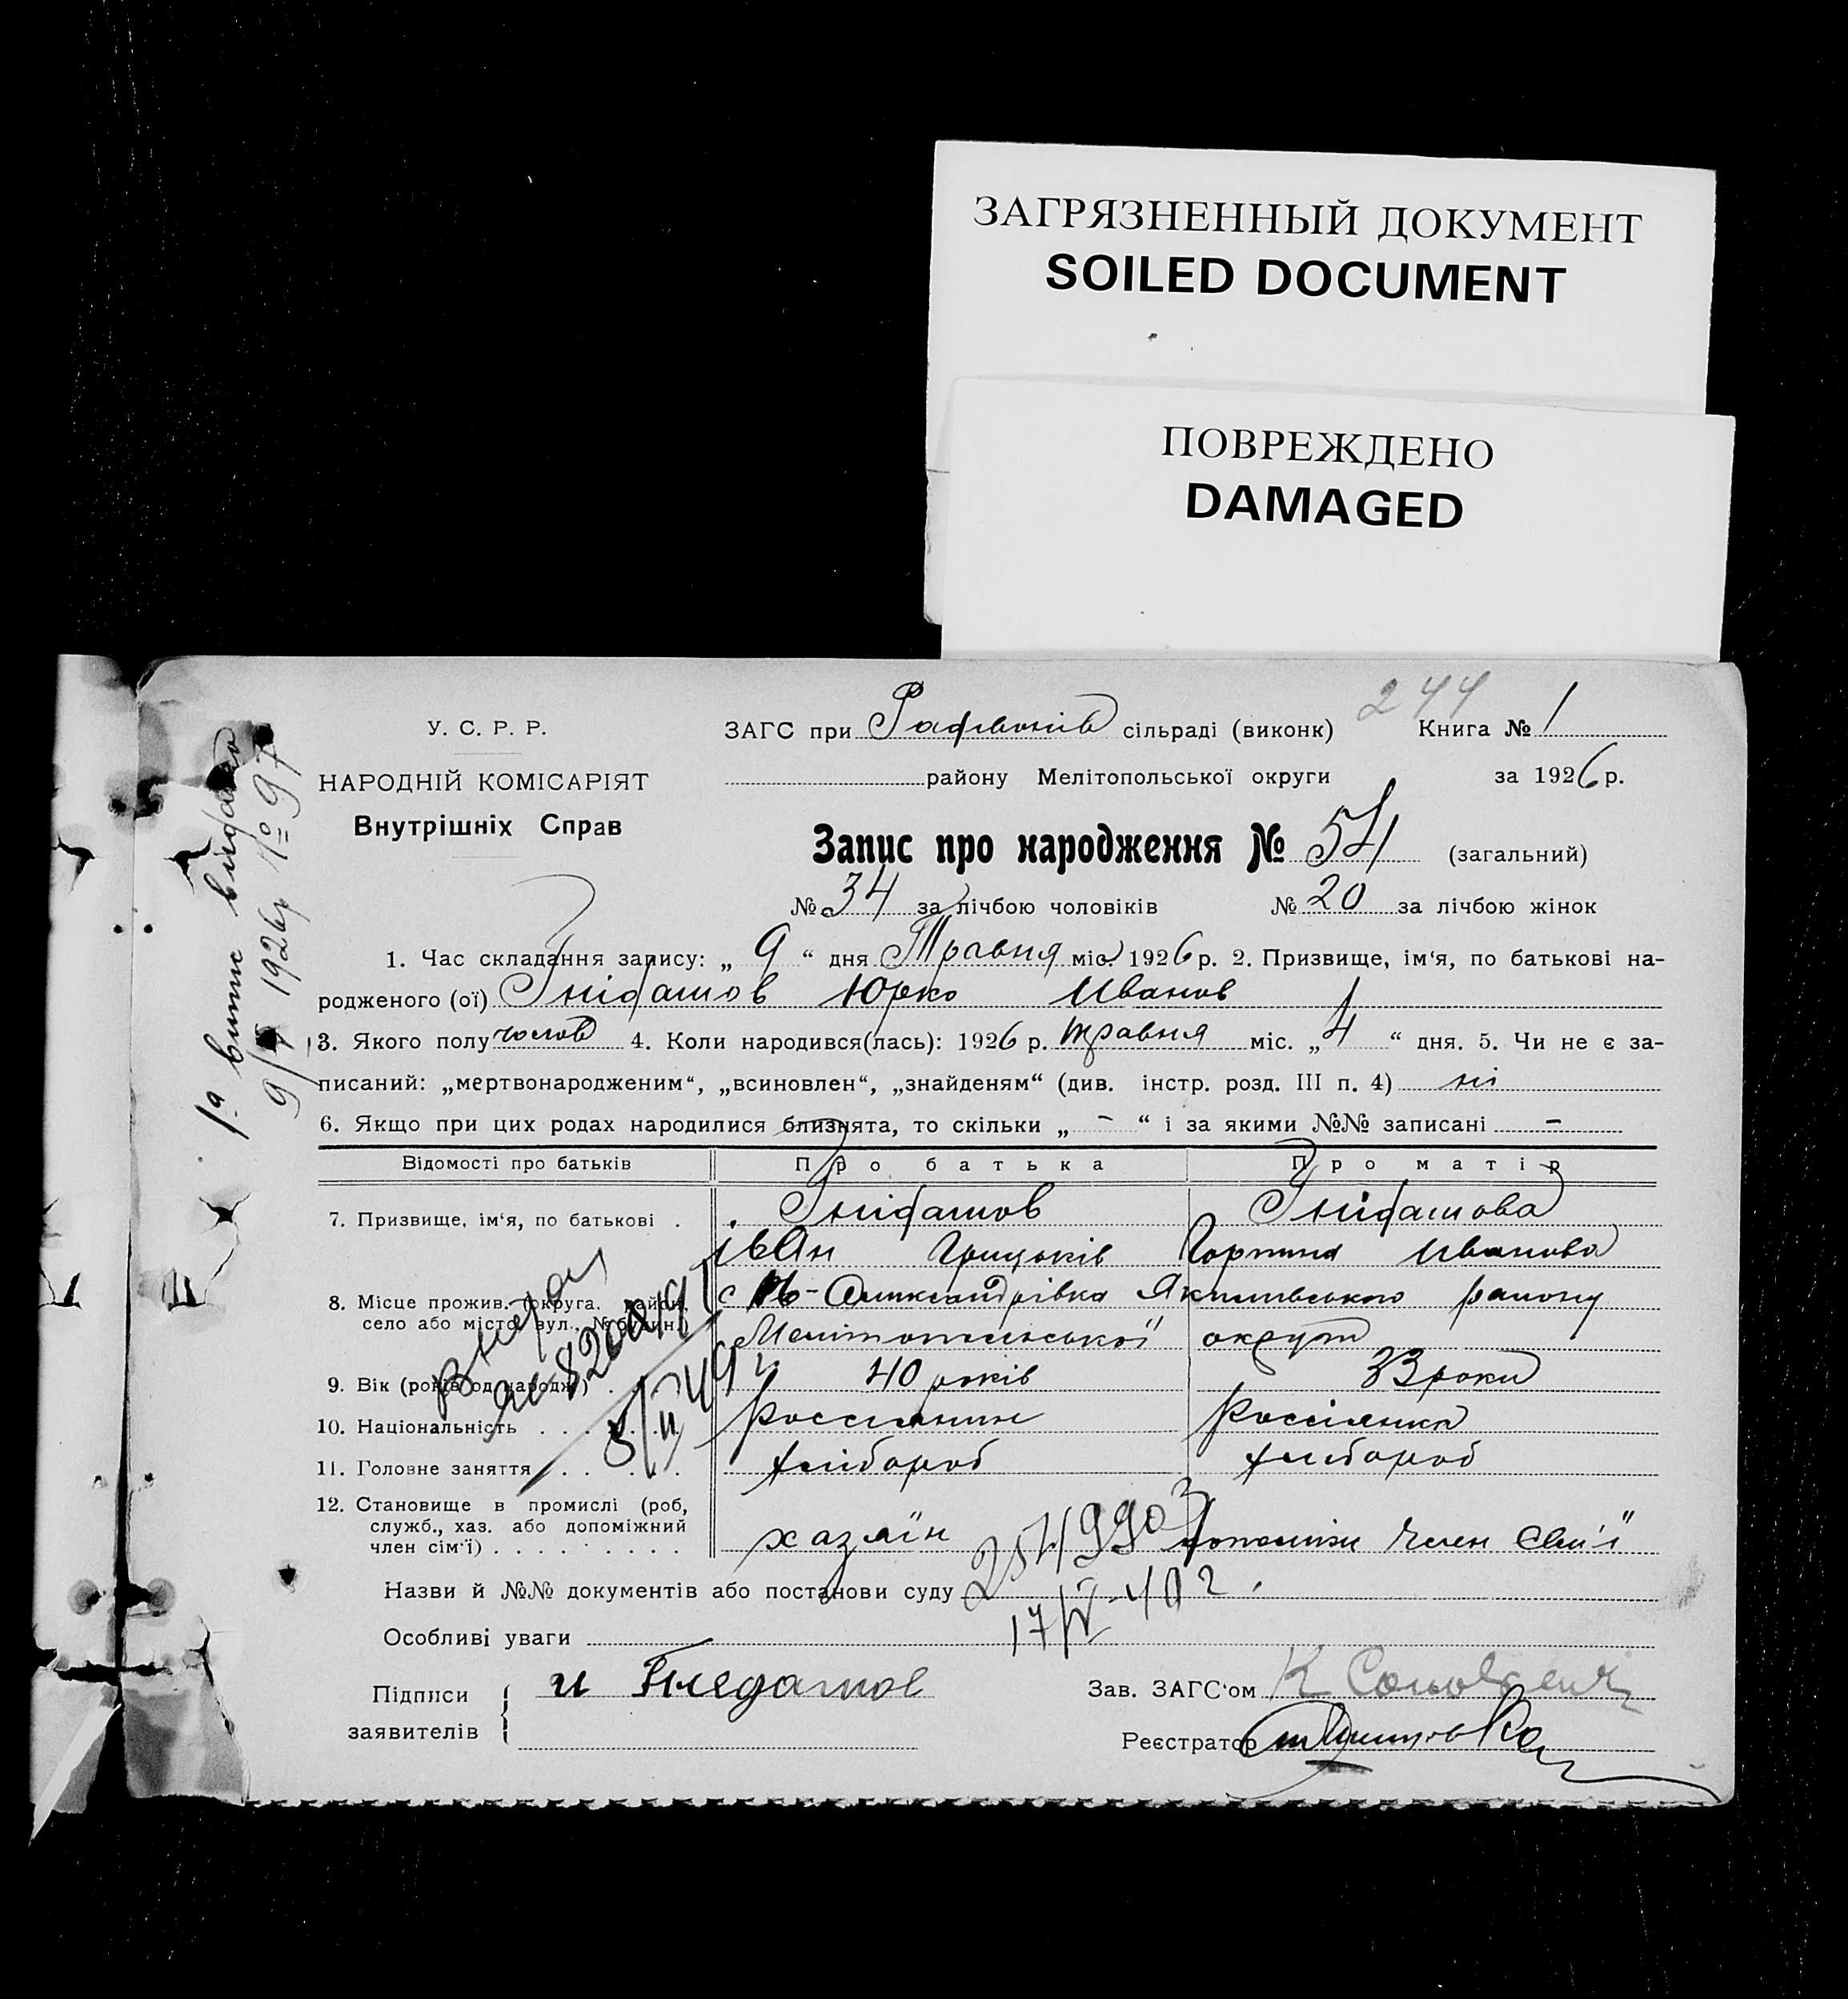 ЗАГРЯЗНЕННЫЙ ДОКУМЕНТ
SOILED DOCUMENT
ПОВРЕЖДЕНО
DAMAGED
244
У. С. Р. Р.
НАРОДНІЙ КОМІСАРІЯТ
Внутрішніх Справ
ЗАГС при сільраді (виконк) Книга № 1
району Мелітопольської округи за 1926 р.
Запис про народження № 54 (загальний)
№ 34 за лічбою чоловіків № 20 за лічбою жінок
1. Час складання запису: „ 9 “ дня Травня міс. 1926 р. 2. Призвище, ім‘я, по батькові на-
родженого (ої) Гнідашов Юрко Иванов
3. Якого полу чолов 4. Коли народився(лась): 1926 р. травня міс. „ 4 “ дня. 5. Чи не є за-
писаний: „мертвонародженим“, „всиновлен“, „знайденям“ (див. інстр. розд. III п. 4) ні
6. Якщо при цих родах народилися близнята, то скільки „ - “ і за якими №№ записані -
Відомості про батьків Про батька Про матір
7. Призвище, ім‘я, по батькові . Гнідашов Гнідашова
Іван Грицьків Горпина Иванова
8. Місце прожив. (округа, район, село або місто, вул., № будин.)
Якимівського району
Мелітопольської округи
9. Вік (років од народж.) 40 років 33 роки
10. Національність Россиянин Россіянка
11. Головне заняття хлібороб хлібороб
12. Становище в промислі (роб,
служб., хаз. або допоміжний
член сім‘ї) хазяїн член сем'ї
Назви й №№ документів або постанови суду
17/IV-40 г.
Особливі уваги
Підписи
заявителів
и Гнедашов
Зав. ЗАГС‘ом К
Реєстратор
1а витис видано
9/V 1926р № 97